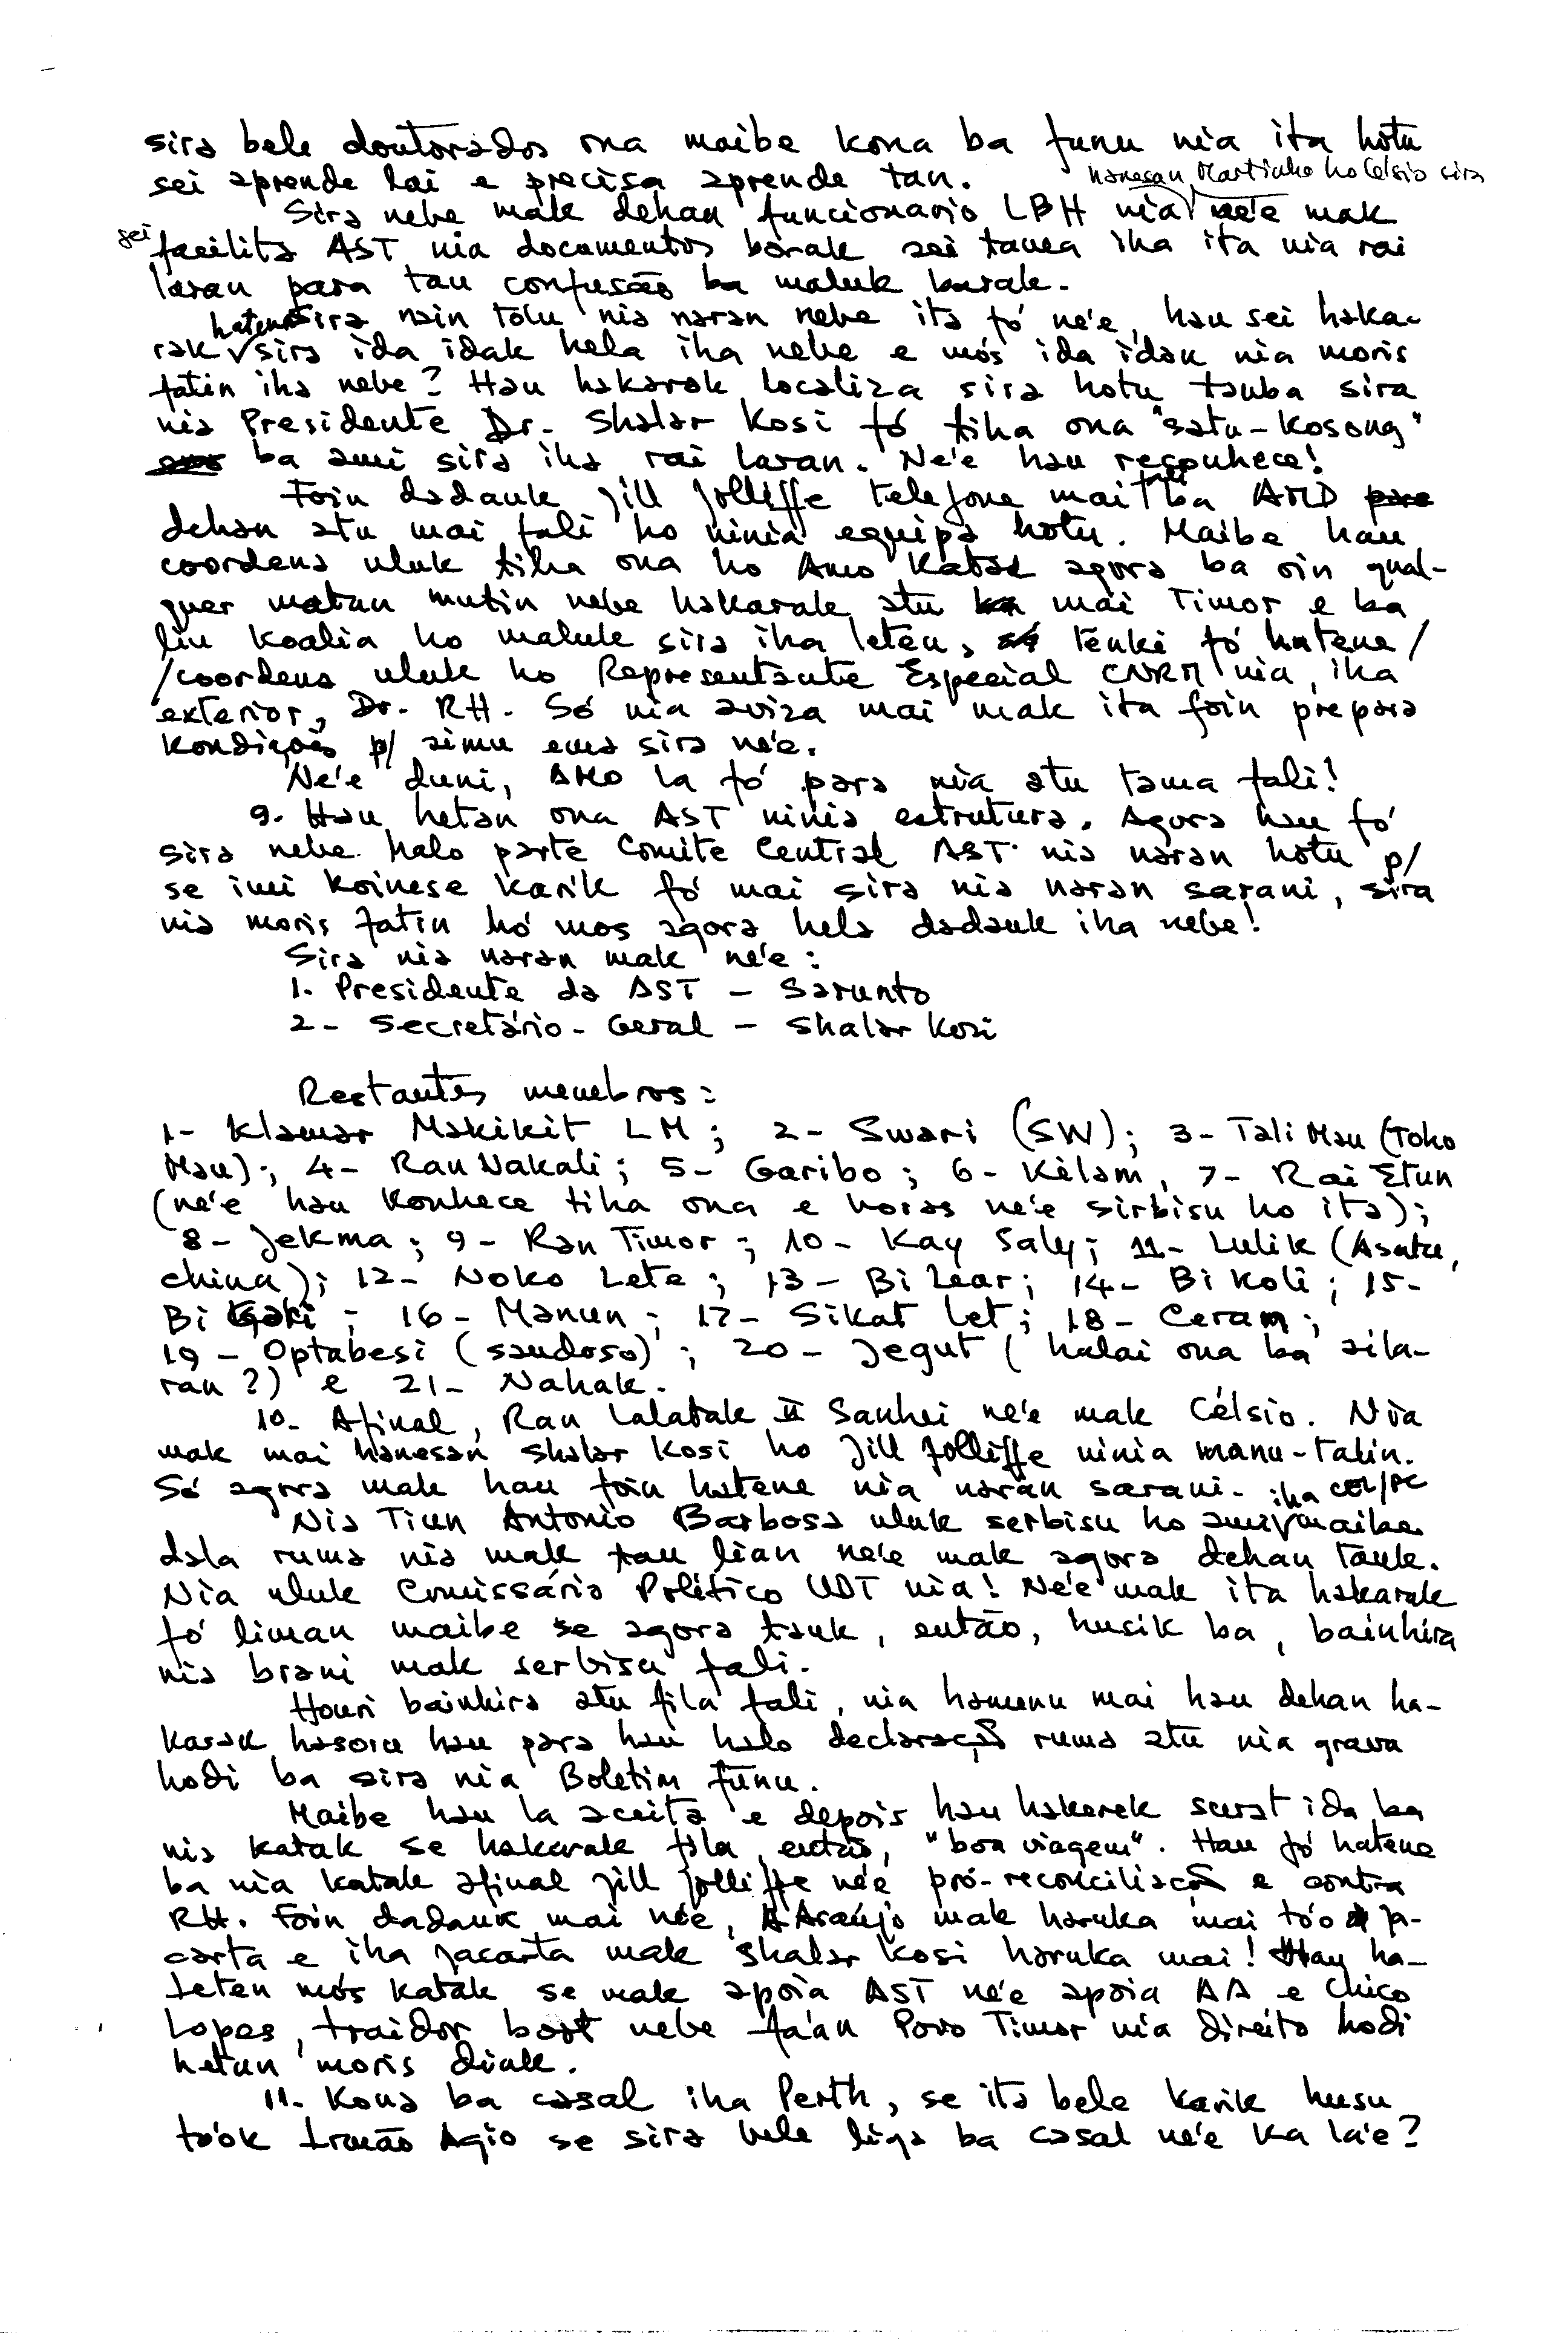 sira bele doutorados ona maibe kona ba funu nia ita hotu
sei aprende lai e precisa aprende tan.
hanesan Martinho ho Celsio sira
Sira nebe mak dehan funcionario LBH nia ne'e mak
sei facilita AST nia documentos barak sei tama iha ita nia rai
laran para tau confusão ba maluk barak.
Sira nain tolu nia naran nebe ita fó ne'e, hau sei haka-
rak hatene sira ida idak hela iha nebe e mós ida idak nia moris
fatin iha nebe? Hau hakarak localiza sira hotu tanba sira
nia Presidente Dr. Shalar Kosi fó tiha ona "satu-kosong"
ba ami sira iha rai laran. Ne'e hau reconhece!
Foin dadauk Jill Jolliffe telefone mai fali ba AMO
dehan atu mai fali ho ninia equipa hotu. Maibe hau
coordena uluk tiha ona ho Amo katak agora ba oin qual-
quer matan mutin nebe hakarak atu mai Timor e ba
liu koalia ho maluk sira iha leten, tenki fó hatene/
/coordena uluk ho Representante Especial CNRM nia, iha
exterior, Dr. RH. Só nia aviza mai mak ita foin prepara
kondiçoēs p/ simu ema sira ne'e.
Ne'e duni, AMO la fó para nia atu tama fali!
9. Hau hetan ona AST ninia estrutura. Agora hau fó
sira nebe halo parte Comite Central AST nia naran hotu p/
se imi koinese karik fó mai sira nia naran sarani, sira
nia moris fatin hó mos agora hela dadauk iha nebe!
Sira nia naran mak ne'e:
1. Presidente da AST - Sarunto
2- Secretário-Geral - Shalar Kosi
Restantes membros:
1- Klamar Makikit LM; 2- Swari (SW); 3- Tali Mau (Toko
Mau); 4- Ran Nakali; 5- Garibo; 6- Kélam, 7- Rai Etun
(ne'e hau konhece tiha ona e horas ne'e sirbisu ho ita);
8- Jekma; 9- Ran Timor; 10- Kay Saly; 11- Lulik (Asatu,
china); 12- Noko Lete; 13- Bi Lear; 14- Bi Koli; 15-
Bi Gaki; 16- Manun; 17- Sikat Let; 18- Ceram;
19- Optabesi (saudoso); 20- Jegut (halai ona ba aila-
ran?) e 21- Nahak.
10- Afinal, Ran Lalatak II Sanhei ne'e mak Célsio. Nia
mak mai hanesan Shalar Kosi ho Jill Jolliffe ninia manu-talin.
Só agora mak hau foin hatene nia naran sarani.
Nia Tiun Antonio Barbosa uluk serbisu ho ami iha CEL/FC maibe
dala ruma nia mak tau lian ne'e mak agora dehan tauk.
Nia uluk Comissário Político UDT nia! Ne'e mak ita hakarak
fó liman maibe se agora tauk, então, husik ba, bainhira
nia brani mak serbisu fali.
Houri bainhira atu fila fali, nia hamenu mai hau dehan ha-
karak hasoru hau para hau halo declaração ruma atu nia grava
hodi ba sira nia Boletim Funu.
Maibe hau la aceita e depois hau hakerek surat ida ba
nia katak se hakarak fila, então, "boa viagem". Hau fó hatene
ba nia katak afinal Jill Jolliffe ne'e pró-reconciliação e contra
RH. Foin dadauk mai ne'e, A Araújo mak haruka mai to'o Ja-
carta e iha Jacarta mak Shalar Kosi haruka mai! Hau ha-
teten mós katak se mak apoia AST ne'e apoia AA e Chico
Lopes, traidor boot nebe fa'an Povo Timor nia direito hodi
hetan moris diak.
11. Kona ba casal iha Perth, se ita bele karik husu
to'ok Irmão Agio se sira bele liga ba casal ne'e ka la'e?